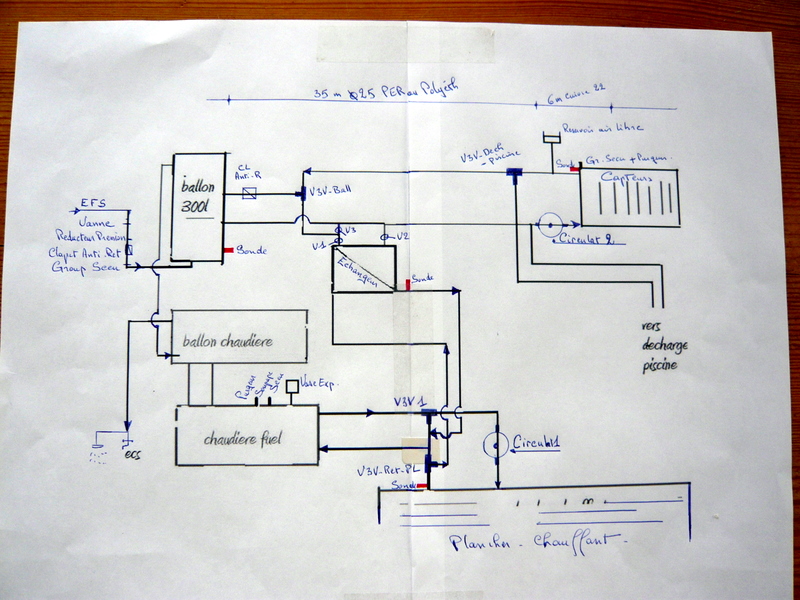 35 m ⌀25 PER ou Polyéth
6m cuivre 22
Reservoir air libre
V3V-Dech
-piscine
Sonde
Gr. Secu + Purgeur.
Capteurs
CL
Anti-R
ballon
300l
V3V-Ball
EFS
Vanne
Reducteur Pression
Clapet Anti Ret
Group Secu
Sonde
V3
V1
V2
Circulat 2
Echangeur
Sonde
vers
decharge
piscine
ballon chaudiere
Purgeur
Secu
Vase Exp.
V3V 1
chaudiere fuel
Circulat 1
ecs
V3V-Ret-PL
Sonde
Plancher - Chauffant -